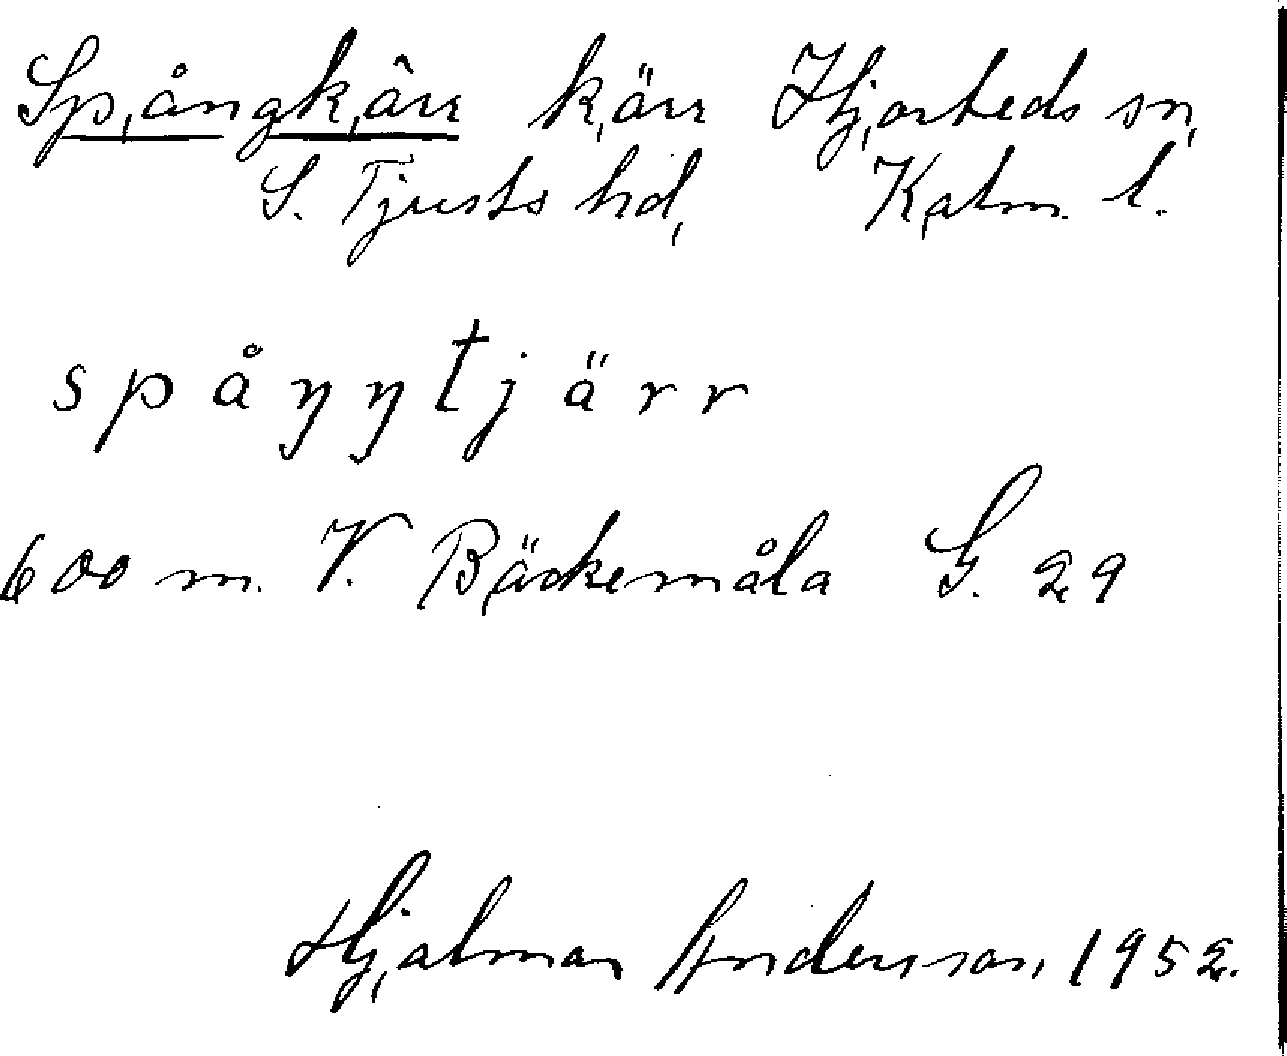 Spångkärr kärr Hjorteds sn,
S. Tjusts hd, Kalm. l.
spåŋŋtjärr
600 m. V. Bäckemåla G. 29
Hjalmar Andersson 1952.